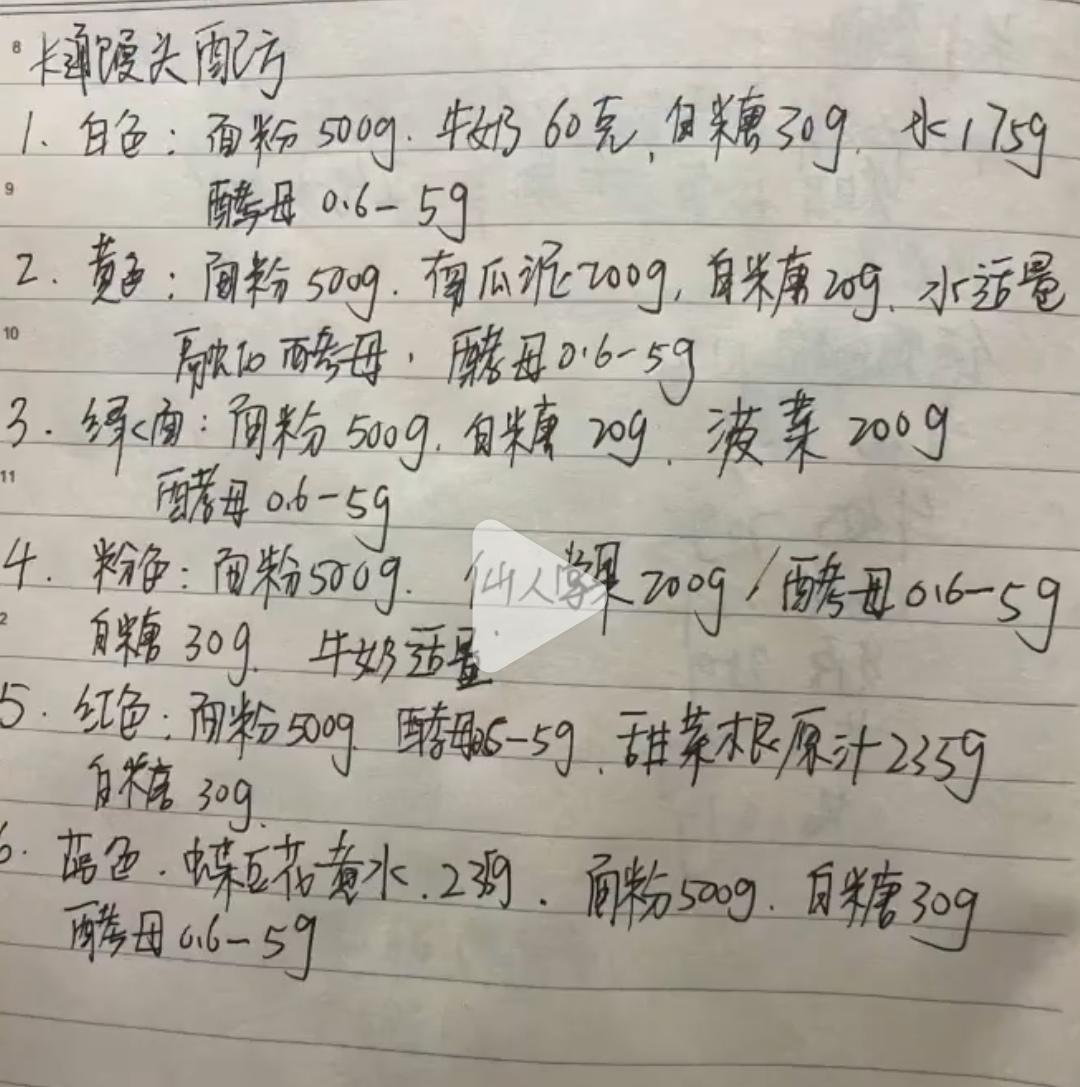 8
卡通馒头配方
1. 白色：面粉500g. 牛奶60克, 白糖30g. 水175g
9
酵母 0.6-5g
2. 黄色：面粉500g. 南瓜泥200g, 白糖20g. 水适量
10
融化酵母, 酵母0.6-5g
3. 绿面：面粉500g. 白糖20g. 菠菜200g
11
酵母0.6-5g
4. 粉色：面粉500g. 仙人掌果200g / 酵母0.6-5g
2
白糖30g. 牛奶适量
5. 红色：面粉500g 酵母0.6-5g. 甜菜根原汁235g
白糖30g.
6. 蓝色. 蝶豆花煮水. 235g. 面粉500g. 白糖30g
酵母0.6-5g